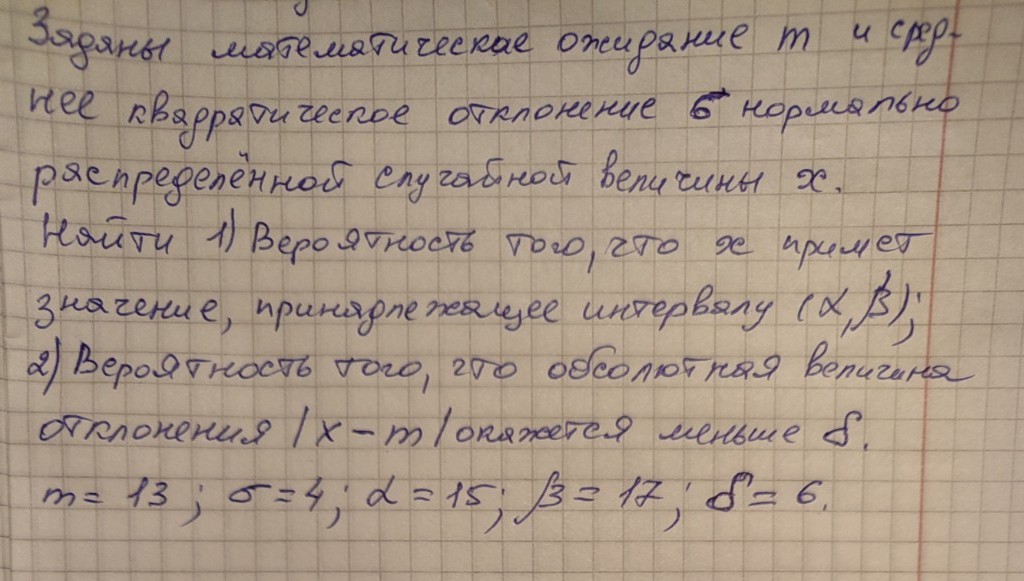 Заданы математическое ожидание m и сред-
нее квадратическое отклонение б нормально
распределённой случайной величины x.
Найти 1) Вероятность того, что x примет
значение, принадлежащее интервалу (α,β);
2) Вероятность того, что обсолютная величина
отклонения |x-m| окажется меньше δ.
m = 13; σ = 4; α = 15; β = 17; δ = 6.